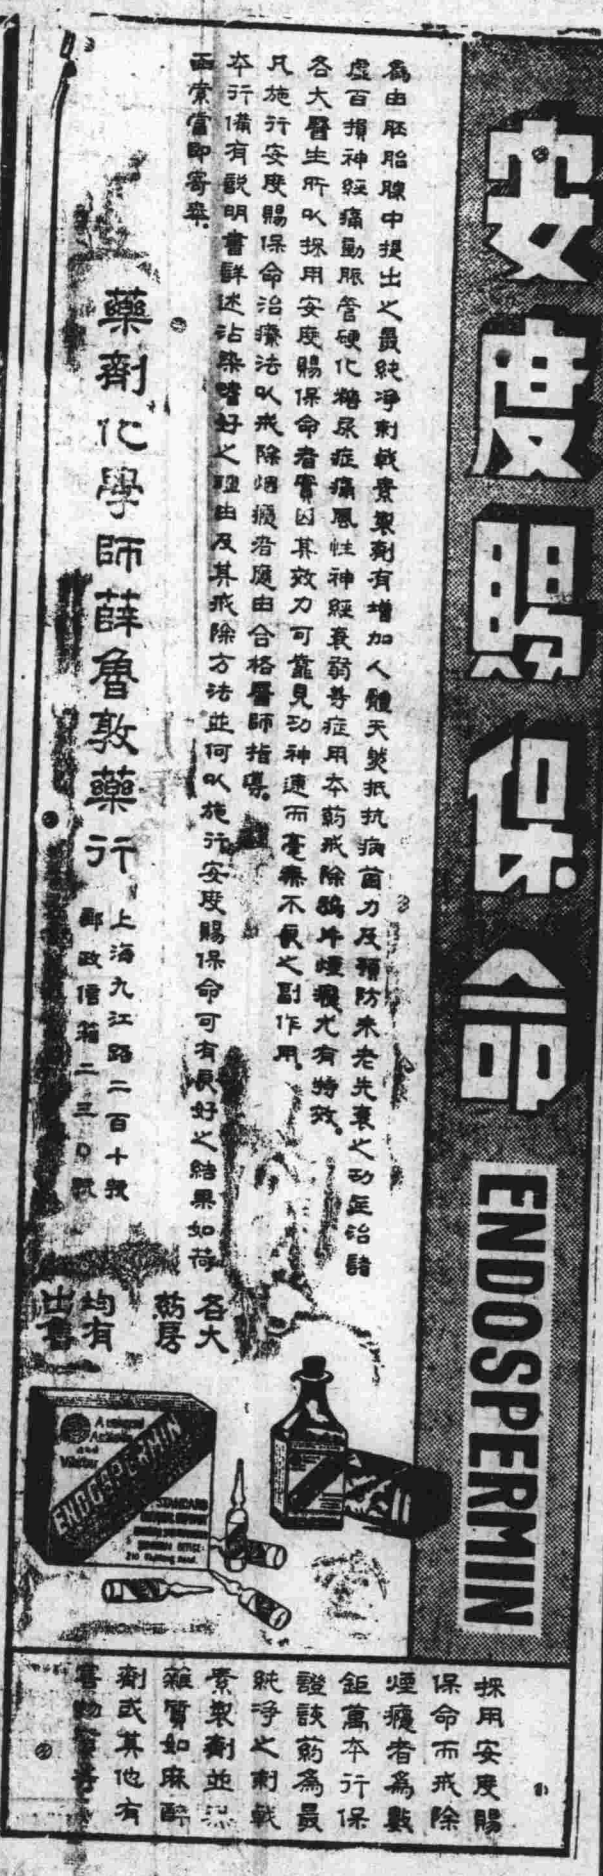 安度賜保命
ENDOSPERMIN
為由胚胎腺中提出之最純淨刺戟素製劑有增加人體天然抵抗病菌力及預防未老先衰之功至治諸
虛百損神經痛動脈管硬化糖尿症痛風性神經衰弱等症用本葯戒除鴉片煙癮尤有特效
各大醫生所以採用安度賜保命者實因其效力可靠見功神速而毫無不良之副作用
凡施行安度賜保命治療法以戒除烟癮者應由合格醫師指導
本行備有說明書詳述沾染嗜好之理由及其戒除方法並何以施行安度賜保命可有良好之結果如荷
函索當即寄奉
藥劑化學師薛魯敦藥行
上海九江路二百十號
郵政信箱二三〇號
各大
葯房
均有
出售
ENDOSPERMIN
STANDARD
採用安度賜
保命而戒除
煙癮者為數
鉅萬本行保
證該葯為最
純淨之刺戟
素製劑並無
雜質如麻醉
劑或其他有
害物